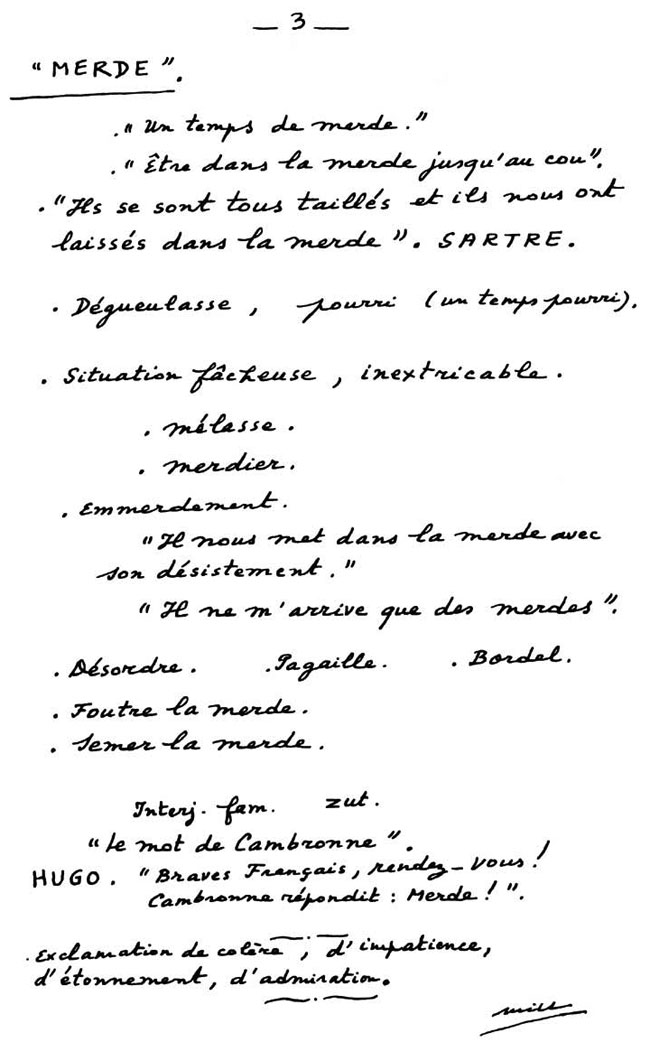 — 3 —
"MERDE".
."Un temps de merde."
."Être dans la merde jusqu'au cou".
."Ils se sont tous taillés et ils nous ont
laissés dans la merde". SARTRE.
. Dégueulasse, pourri (un temps pourri).
. Situation fâcheuse, inextricable.
. mélasse.
. merdier.
. Emmerdement.
"Il nous met dans la merde avec
son désistement."
"Il ne m'arrive que des merdes".
. Désordre. .Pagaille. . Bordel.
. Foutre la merde.
. Semer la merde.
Interj. fam. zut.
"Le mot de Cambronne".
HUGO. "Braves Français, rendez-vous!
Cambronne répondit : Merde!".
. Exclamation de colère, d'impatience,
d'étonnement, d'admiration.